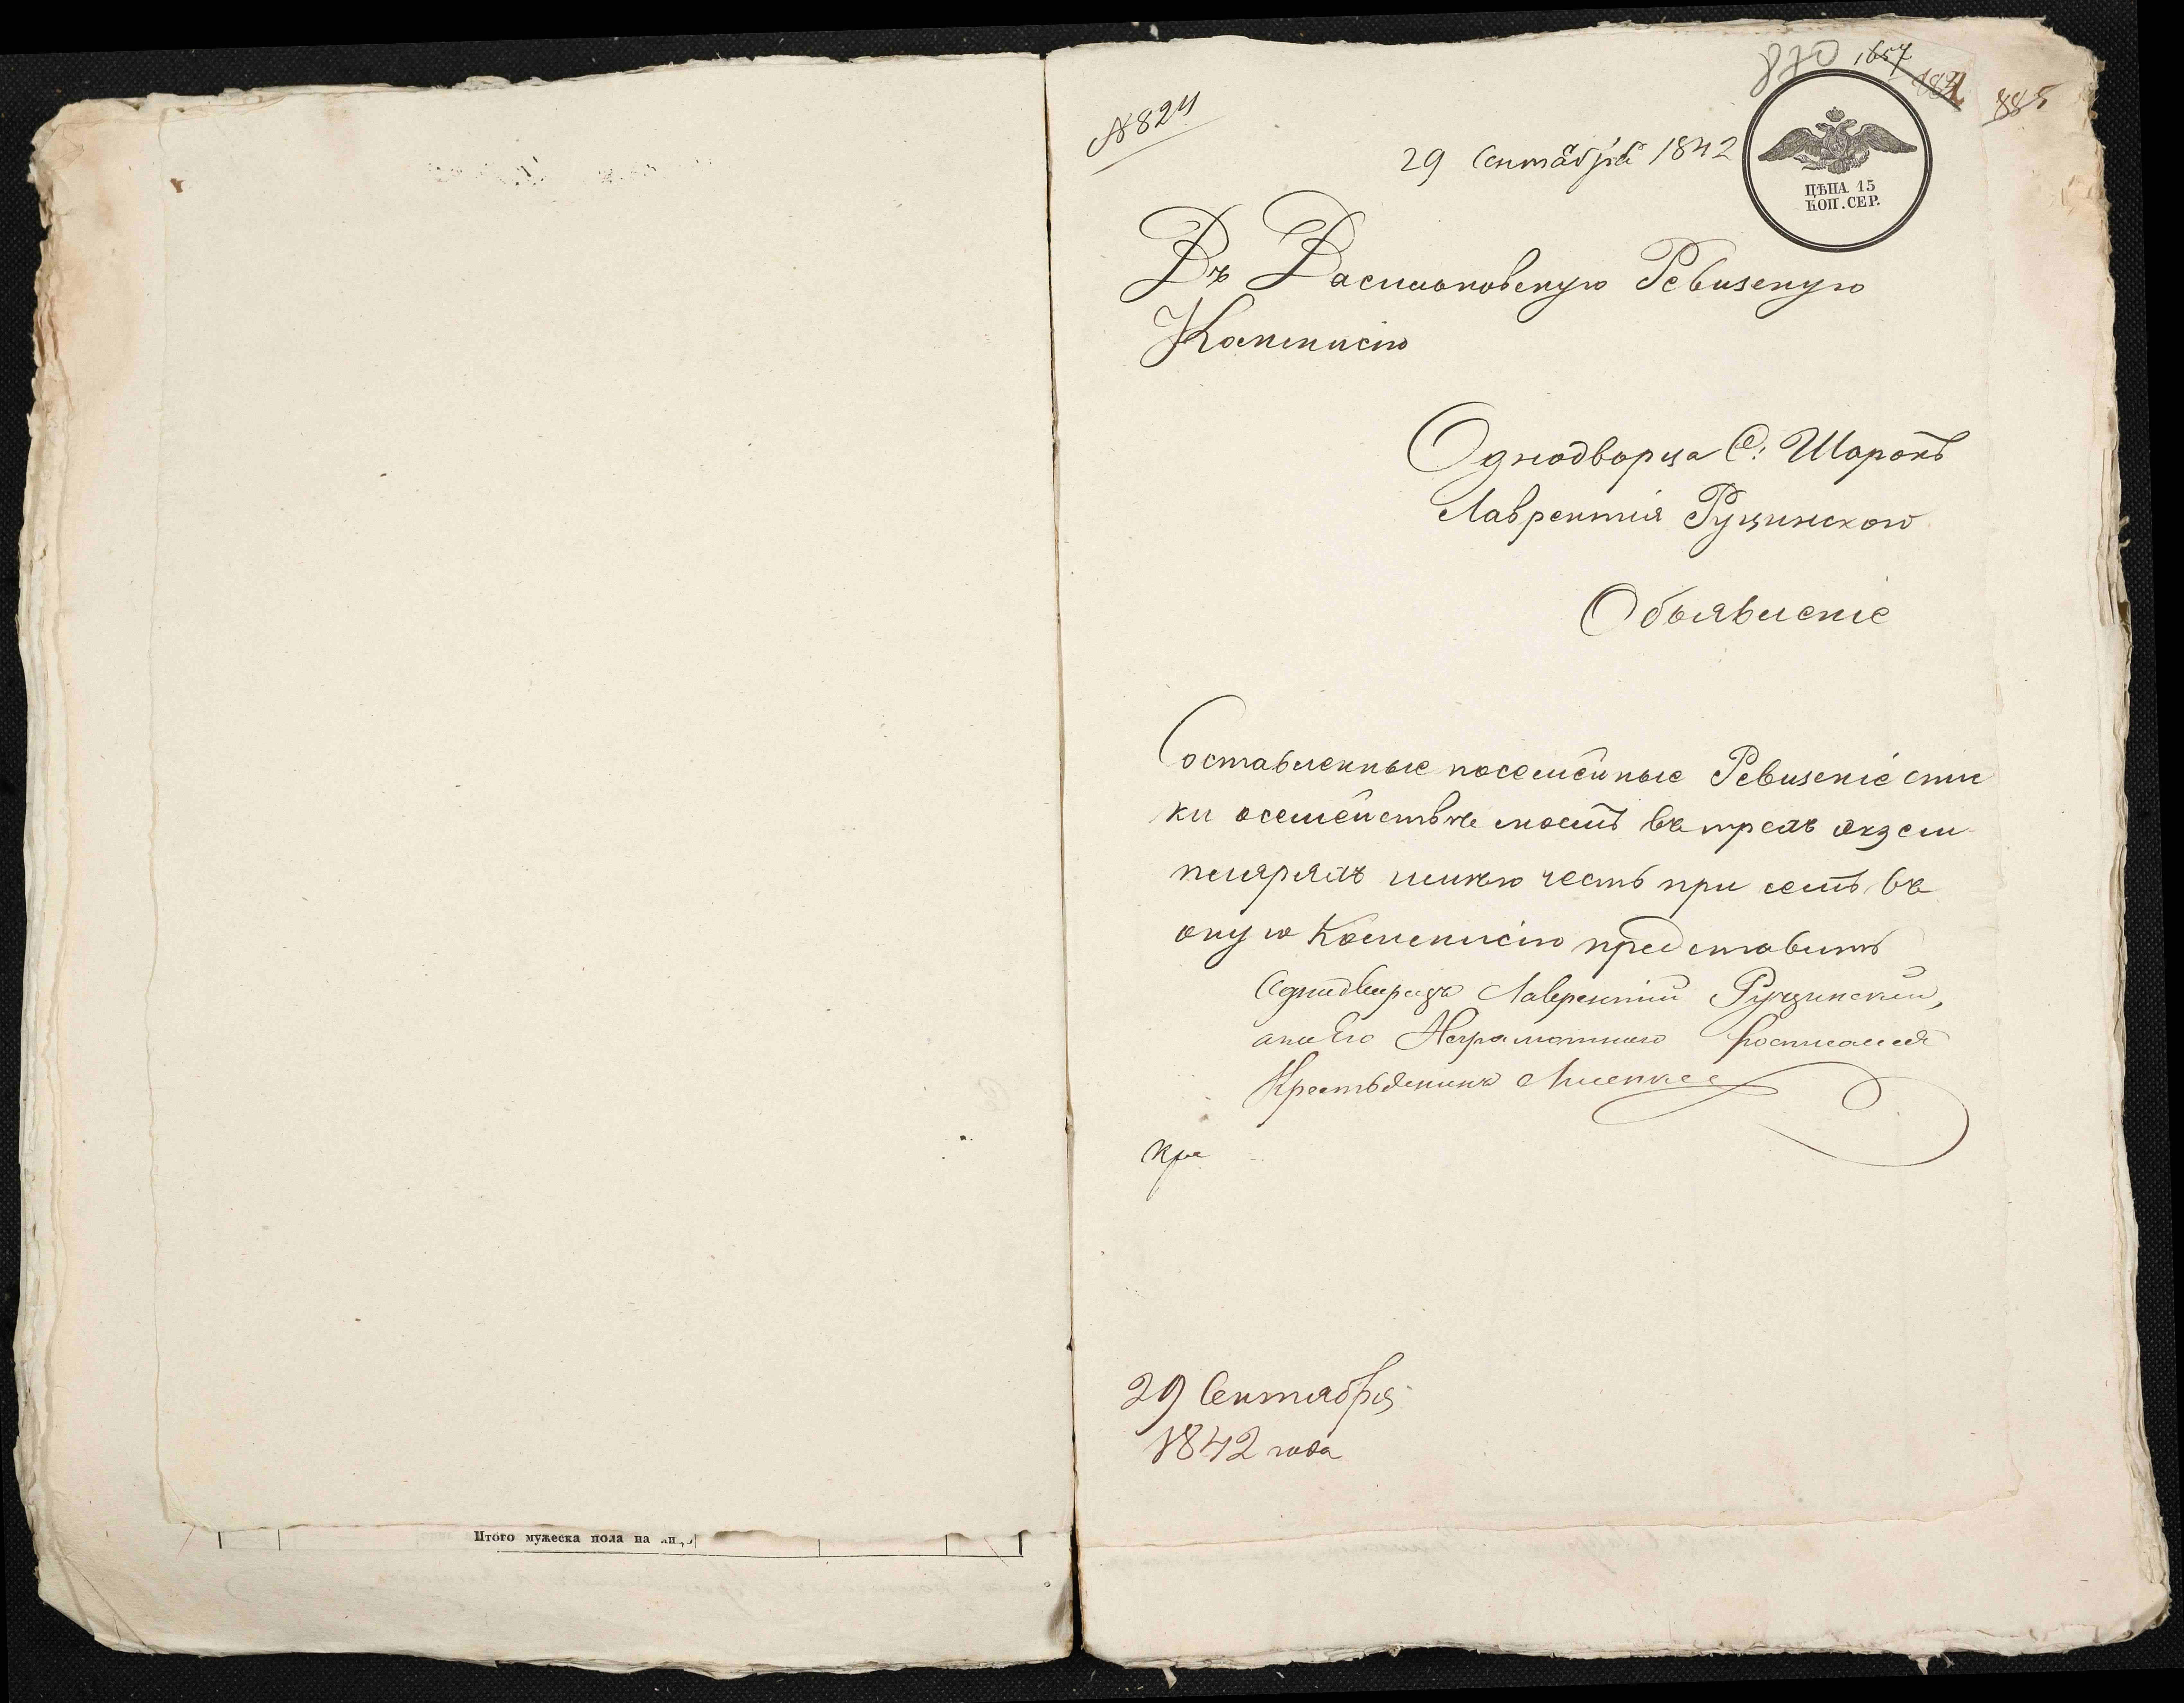 870 1657
884 885
№ 824
29 Сентября 1842
ЦѢНА 15
КОП. СЕР.
Въ Васильковскую Ревизскую
Коммисію
Однодворца С: Шарокъ
Лаврентія Рущинского
Объявленіе
Составленные посемейные Ревизскіе спис
ки осемействе моемъ въ трехъ экзем
плярахъ имею честь при семъ въ
оную Коммисію представить
Однодворецъ Лаврентій Рущинскій,
а по Его Неграмотного Росписался
Крестьянинъ
Кре
29 Сентября
1842 года
Итого мужеска пола на лицо